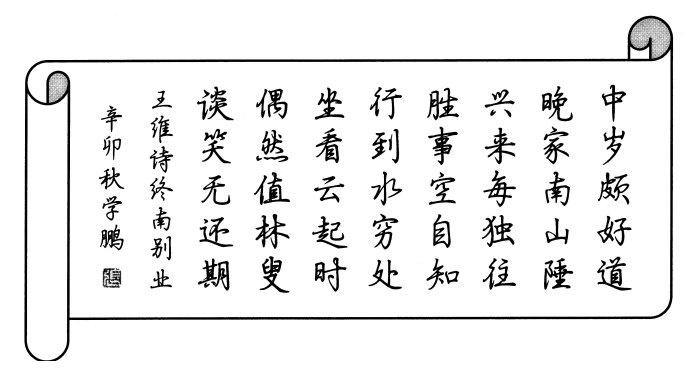 中岁颇好道
晚家南山陲
兴来每独往
胜事空自知
行到水穷处
坐看云起时
偶然值林叟
谈笑无还期
王维诗终南别业
辛卯秋学鹏